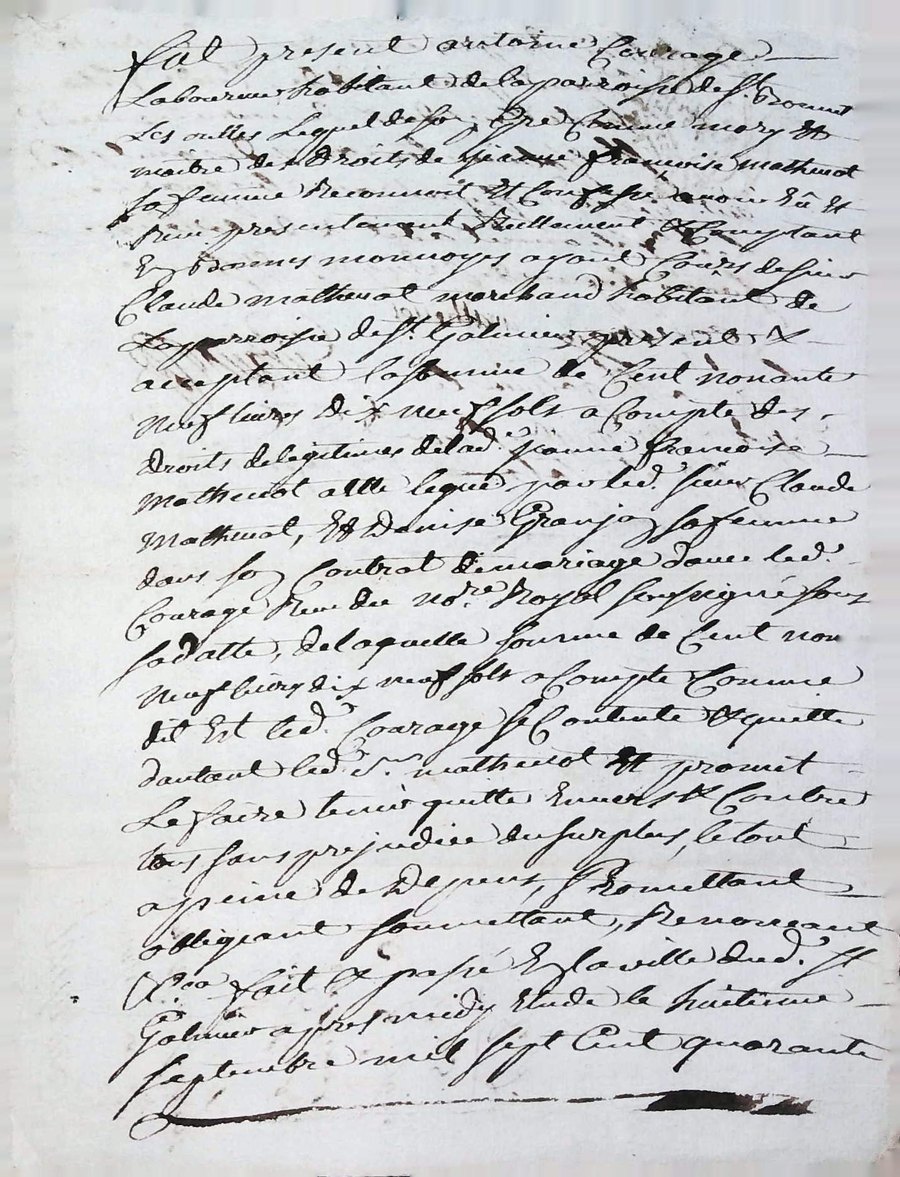 Fut present antoine Courage
Laboureur habitant de la parroisse de St. Bonnet
Les oulles Lequel de son gre Comme mary Et
maitre des droits de jeanne françoise mathevot
sa femme Reconnoit Et Confesse avoir Eû Et
Receu presentement Reellement & Comptant
En bonnes monnoyes ayant Cours de sieur
Claude mathevot marchand habitant de
La parroisse de St. Galmier present &
acceptant la somme de Cent nonante
neuf livres dix neuf sols a Compte des
droits de legitimes de lad. jeanne francoise
Mathevot a Elle legué par led. sieur Claude
Mathevot, Et Denise Granjon sa femme
dans son Contrat de mariage avec led.
Courage Receu du nore. Royal soussigné sous
sa datte, de laquelle somme de Cent non
neuf livres dix neuf sols a Compte Comme
dit Est led. Courage se Contente & quitte
dautant led. sr. mathevot Et promet
Le faire tenir quitte Envers & Contre
tous sans prejudice du surplus, le tout
a peine de Depens, Promettant
obligeant soumettant, Renonceant
&ca fait & passé En la ville dud. St
Galmier apres midy Etude le huitieme
septembre mil sept Cent quarante